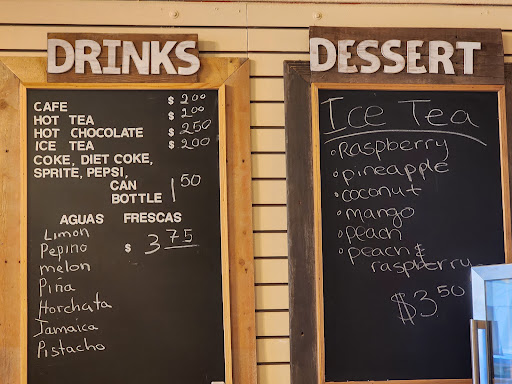 DRINKS
CAFE $ 2.00
HOT TEA $ 2.00
HOT CHOCOLATE $ 2.50
ICE TEA $ 2.00
COKE, DIET COKE,
SPRITE, PEPSI,
CAN
BOTTLE 1 50
AGUAS FRESCAS
$ 3 75
Limon
Pepino
melon
Piña
Horchata
Jamaica
Pistacho
DESSERT
Ice Tea
•Raspberry
•pineapple
•coconut
•mango
•peach
•peach &
raspberry
$3 50